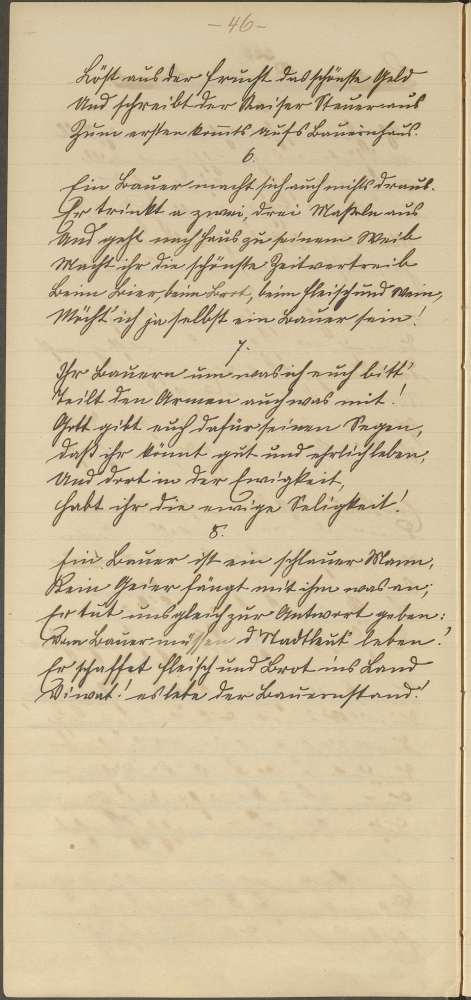 - 46 -
Löst aus der Frucht das schönste Geld
Und schreibt der Kaiser Steuer aus
Zum ersten kommts aufs Bauernhaus.
6.
Ein Bauer macht sich auch nichts draus.
Er trinkt a zwei, drei Maßeln aus
Und geht nach Haus zu seinem Weib
Macht ihr die schönste Zeitvertreib
Beim Bier beim Brot, beim Fleisch und Wein,
Möcht' ich ja selbst ein Bauer sein!
7.
Ihr Bauern um was ich euch bitt'
Teilt den Armen auch was mit!
Gott gibt euch dafür seinen Segen,
daß ihr könnt gut und ehrlich leben,
Und dort in der Ewigkeit,
habt ihr die ewige Seligkeit!
8.
Ein Bauer ist ein schlauer Mann,
Kein Geier fängt mit ihm was an;
Er tut uns gleich zur Antwort geben:
Vom Bauer müssen d' Stadtleut' leben!
Er schaffet Fleisch und Brot ins Land
Vivat! es lebe der Bauernstand!